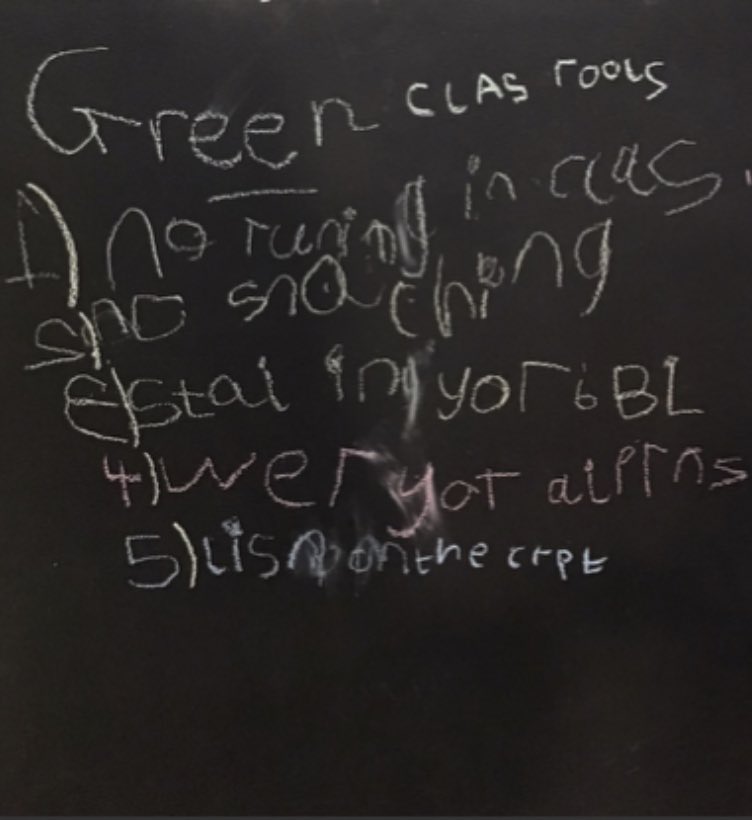 Green CLAS rools
1) no runing in clas
2) no snaching
3) stai in yor iBL
4) wer yor aiprns
5) lisn on the crpt